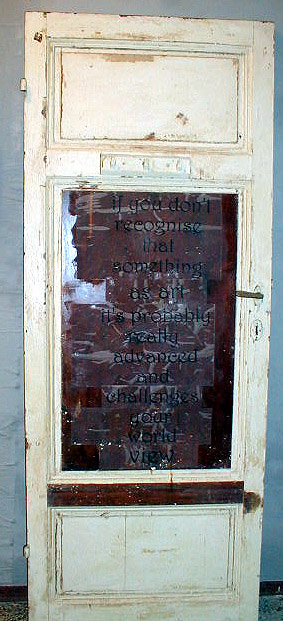 if you don't
recognise
that
something
as art
it's probably
really
advanced
and
challenges
your
world
view